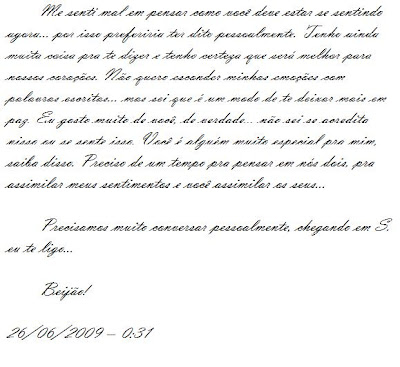 Me senti mal em pensar como você deve estar se sentindo
agora... por isso preferiria ter dito pessoalmente. Tenho ainda
muita coisa pra te dizer e tenho certeza que será melhor para
nossos corações. Não quero esconder minhas emoções com
palavras escritas... mas sei que é um modo de te deixar mais em
paz. Eu gosto muito de você, de verdade... não sei se acredita
nisso ou se sente isso. Você é alguém muito especial pra mim,
saiba disso. Preciso de um tempo pra pensar em nós dois, pra
assimilar meus sentimentos e você assimilar os seus...
Precisamos muito conversar pessoalmente, chegando em S.
eu te ligo...
Beijão!
26/06/2009 – 0:31